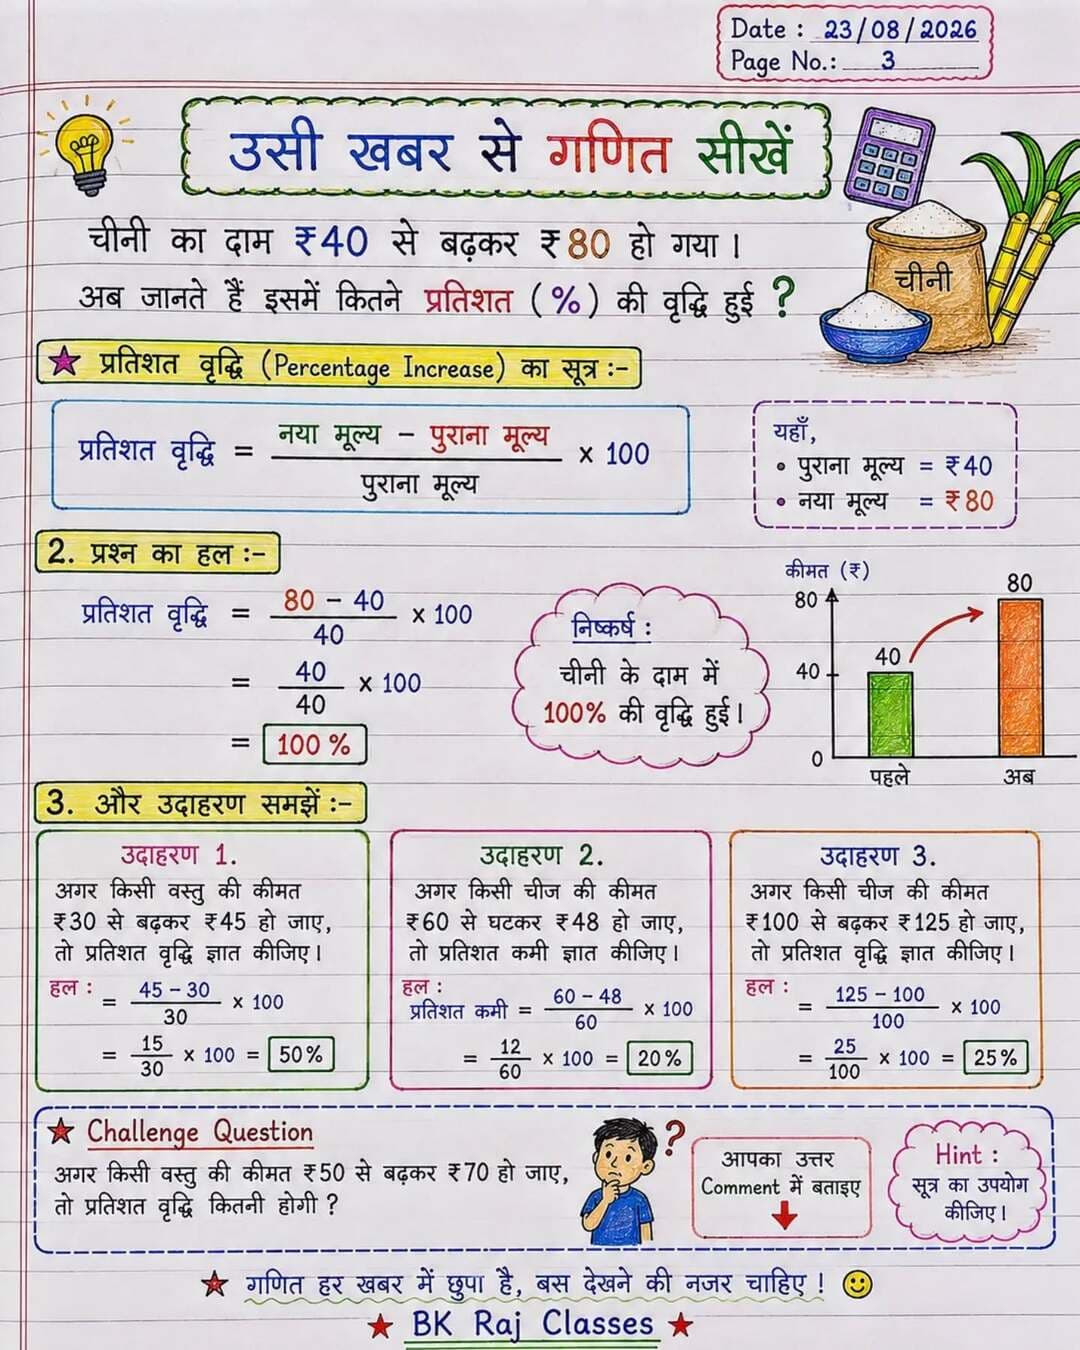 Date : 23/08/2026
Page No.: 3
उसी खबर से गणित सीखें
चीनी का दाम ₹40 से बढ़कर ₹80 हो गया।
अब जानते हैं इसमें कितने प्रतिशत (%) की वृद्धि हुई ?
चीनी
★ प्रतिशत वृद्धि (Percentage Increase) का सूत्र :-
प्रतिशत वृद्धि = (नया मूल्य - पुराना मूल्य) / पुराना मूल्य × 100
यहाँ,
• पुराना मूल्य = ₹40
• नया मूल्य = ₹80
2. प्रश्न का हल :-
प्रतिशत वृद्धि = (80 - 40) / 40 × 100
= 40 / 40 × 100
= 100 %
निष्कर्ष :
चीनी के दाम में
100% की वृद्धि हुई।
कीमत (₹)
80
40
0
40
80
पहले
अब
3. और उदाहरण समझें :-
उदाहरण 1.
अगर किसी वस्तु की कीमत
₹30 से बढ़कर ₹45 हो जाए,
तो प्रतिशत वृद्धि ज्ञात कीजिए।
हल :
= (45 - 30) / 30 × 100
= 15 / 30 × 100 = 50%
उदाहरण 2.
अगर किसी चीज की कीमत
₹60 से घटकर ₹48 हो जाए,
तो प्रतिशत कमी ज्ञात कीजिए।
हल :
प्रतिशत कमी = (60 - 48) / 60 × 100
= 12 / 60 × 100 = 20%
उदाहरण 3.
अगर किसी चीज की कीमत
₹100 से बढ़कर ₹125 हो जाए,
तो प्रतिशत वृद्धि ज्ञात कीजिए।
हल :
= (125 - 100) / 100 × 100
= 25 / 100 × 100 = 25%
★ Challenge Question
अगर किसी वस्तु की कीमत ₹50 से बढ़कर ₹70 हो जाए,
तो प्रतिशत वृद्धि कितनी होगी ?
?
आपका उत्तर
Comment में बताइए
Hint :
सूत्र का उपयोग
कीजिए।
★ गणित हर खबर में छुपा है, बस देखने की नजर चाहिए !
★ BK Raj Classes ★